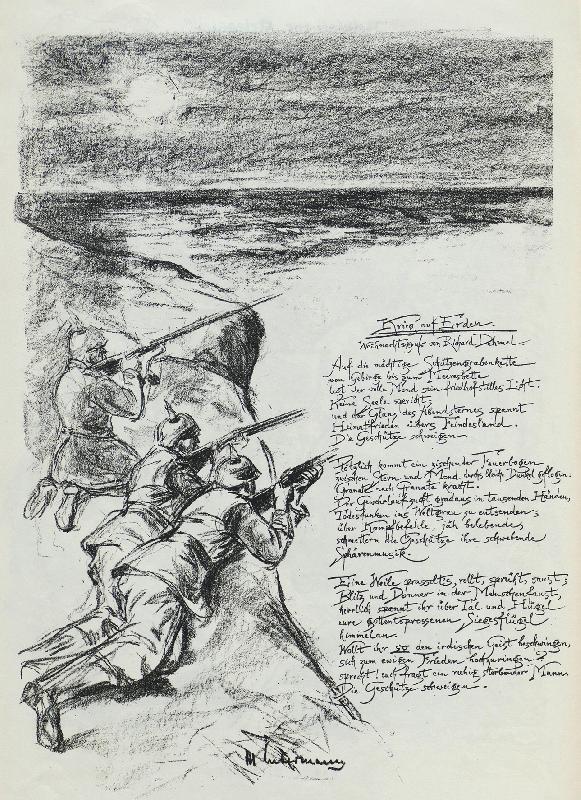 Krieg auf Erden.
Weihnachtsgruß von Richard Dehmel.
Auf die mächtige Schützengrabenkette
vom Gebirge bis zum Meeresbette
legt der volle Mond sein friedhofstilles Licht.
Keine Seele spricht.
und der Glanz des Abendsternes spannt
Heimatfrieden übers Feindesland.
Die Geschütze schweigen.
Plötzlich kommt ein zischender Feuerbogen
zwischen Stern und Mond durchs bleiche Dunkel geflogen.
Granate nach Granate kracht.
Gewehrlauf gradaus in tausenden Händen,
Todesfunken ins zu entsenden;
über Kampfbefehle jäh belebendes
schmettern die Geschütze ihre schwebende
Sphärenmusik.
Eine Weile prasselts, rollt, sprüht, saust;
Blitz und Donner in der Menschenfaust,
herrlich spannt ihr über Tal und Hügel
eure gottentsprossenen Siegesflügel
himmelan.
Wollt ihr so den irdischen Geist beschwingen,
sich zum ewigen Frieden hochzuringen?
spricht ein ruhig sterbender Mann.
Die Geschütze schweigen.
M Liebermann